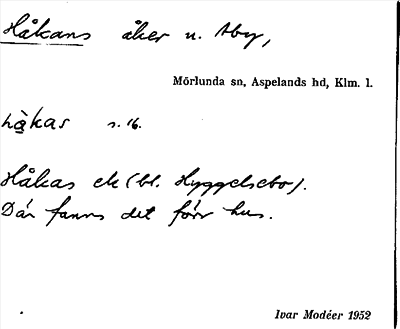 Håkans åker u. Åby,
Mörlunda sn, Aspelands hd, Klm. l.
hå̀kas s. 16.
Håkas ek (bl. Hyggelsebo).
Där fanns det förr hus.
Ivar Modéer 1952